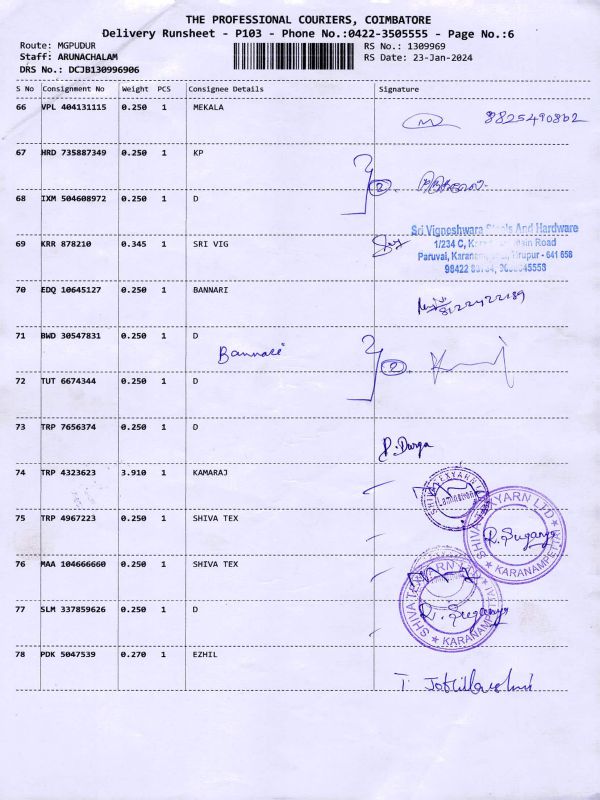 THE PROFESSIONAL COURIERS, COIMBATORE
Delivery Runsheet - P103 - Phone No.:0422-3505555 - Page No.:6
Route: MGPUDUR RS No.: 1309969
Staff: ARUNACHALAM RS Date: 23-Jan-2024
DRS No.: DCJB130996906
S No Consignment No Weight PCS Consignee Details Signature
66 VPL 404131115 0.250 1 MEKALA
8825490862
67 HRD 735887349 0.250 1 KP
2
68 IXM 504608972 0.250 1 D
Sri Vigneshwara And Hardware
69 KRR 878210 0.345 1 SRI VIG
1/234 C, Main Road
Paruvai, Tirupur - 641 658
98422
70 EDQ 10645127 0.250 1 BANNARI
8122422189
71 BWD 30547831 0.250 1 D
Bannari
2
72 TUT 6674344 0.250 1 D
73 TRP 7656374 0.250 1 D
P. Durga
74 TRP 4323623 3.910 1 KAMARAJ
SHIVA TEXYARN LTD
75 TRP 4967223 0.250 1 SHIVA TEX
SHIVA TEXYARN LTD
R. Suganya
KARANAMPET
76 MAA 104666660 0.250 1 SHIVA TEX
SHIVA TEXYARN LTD
77 SLM 337859626 0.250 1 D
R. Suganya
KARANAMPET
78 PDK 5047539 0.270 1 EZHIL
T.